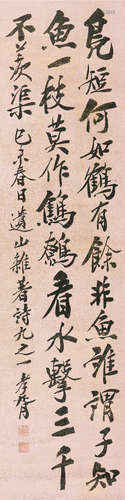 凫短何如鶴有餘非魚誰謂子知
魚一枝莫作鷦鷯看水擊三千
不羨渠 己未春日遺山雜著詩九之一 孝胥